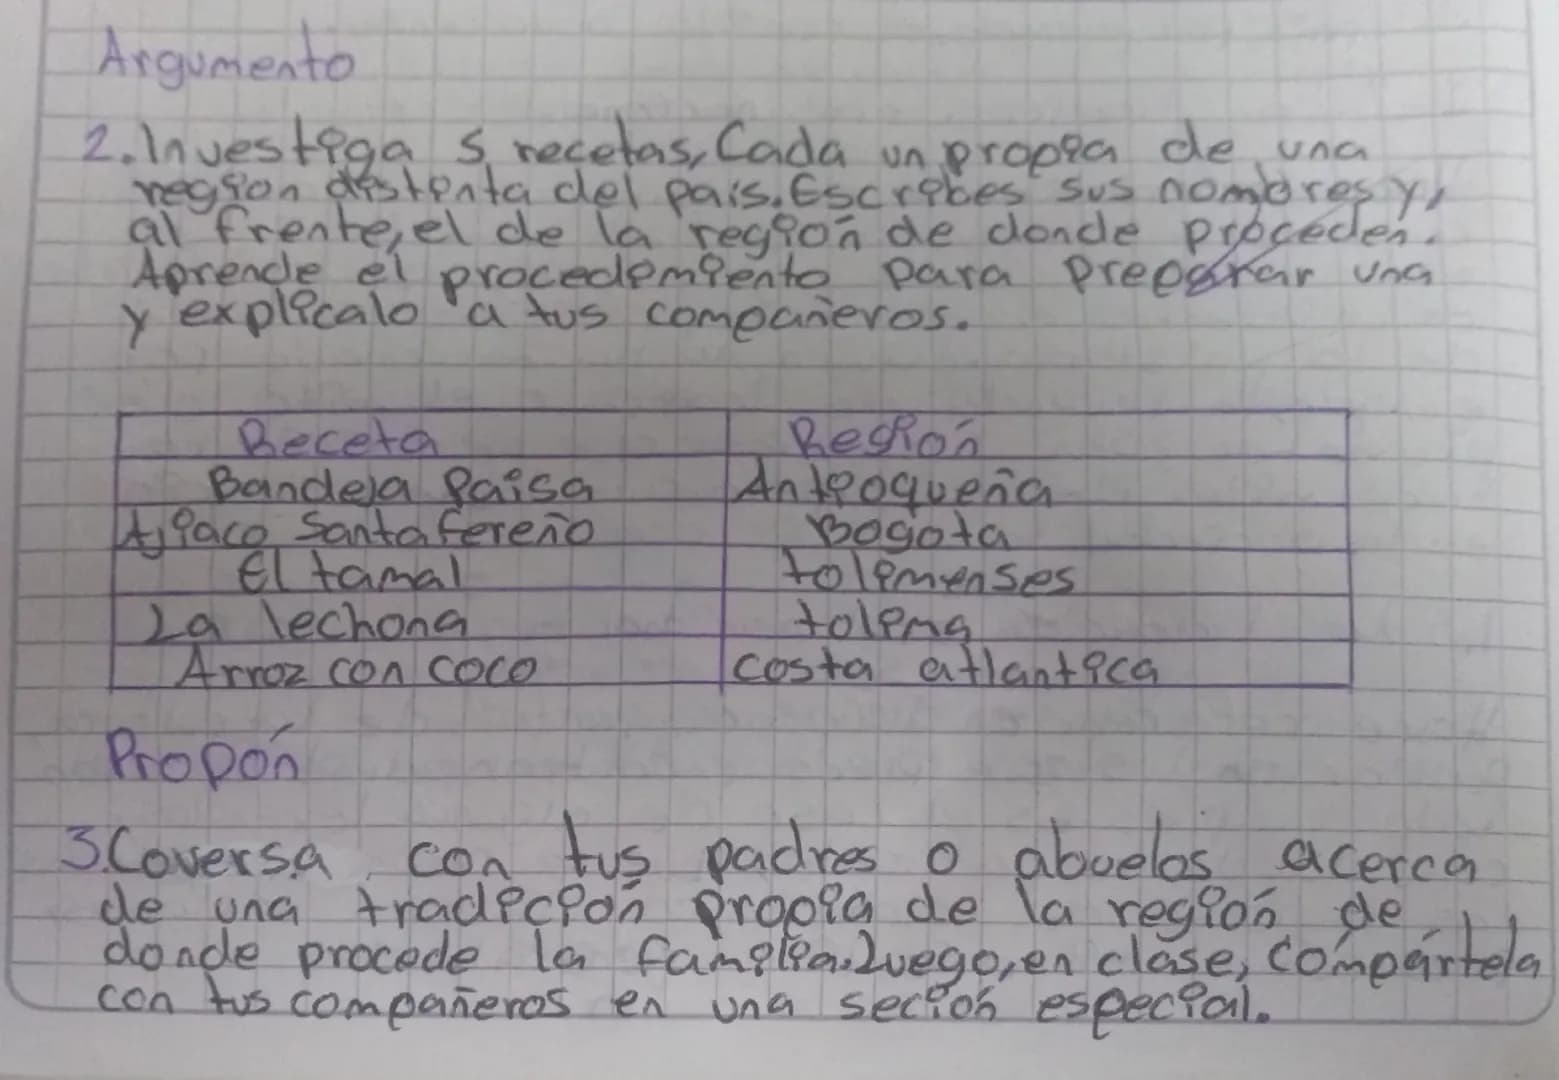 Argumento
2. Investiga 5 recetas, Cada un propia de una
región distinta del pais. Escribes sus nombres y,
al frente, el de la región de donde proceden.
Aprende el procedimiento para preparar una
y explicalo a tus compañeros.
Receta Región
Bandeja Paisa Antioqueña
Ajiaco Santafereño Bogota
El tamal tolimenses
La lechona tolima
Arroz con coco costa atlantica
Propón
3. Coversa con tus padres o abuelos acerca
de una tradición propia de la región de
donde procede la familia. Luego, en clase, compártela
con tus compañeros en una seción especial.